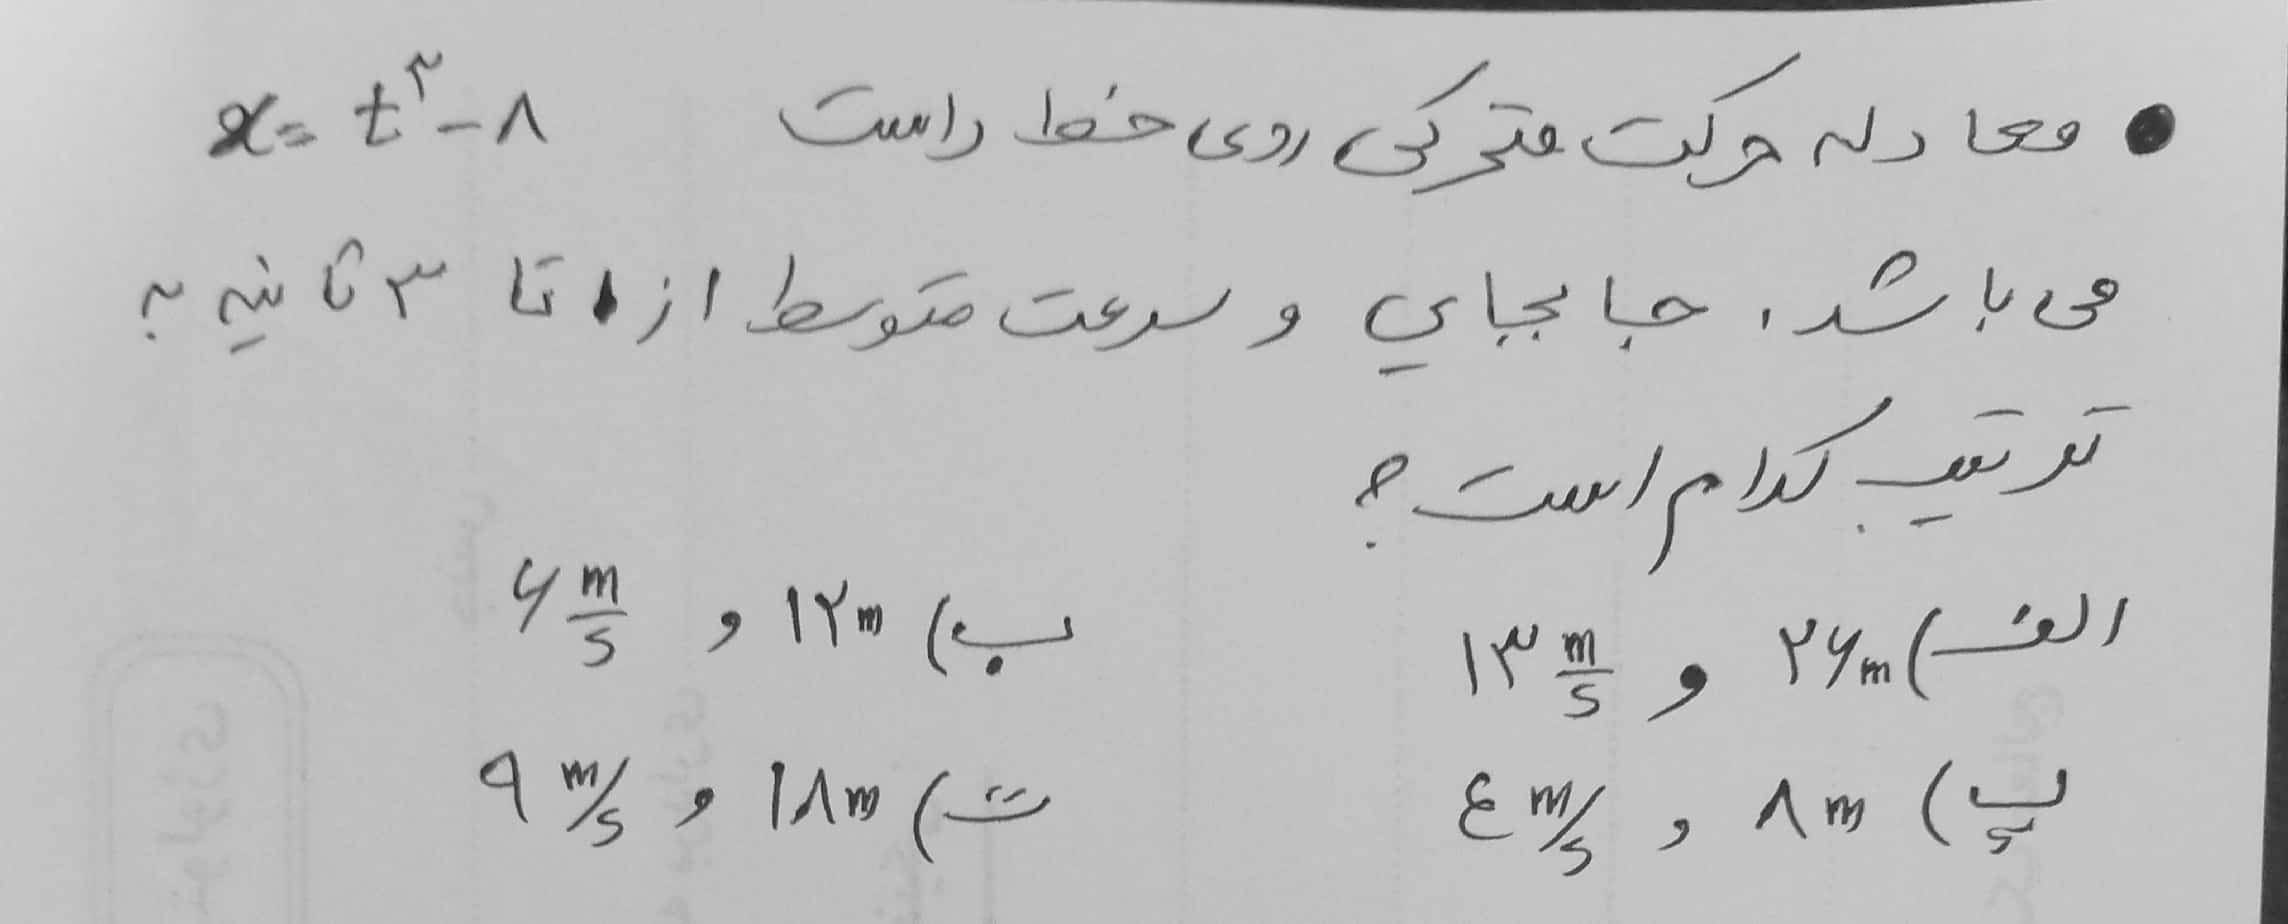 ● معادله حرکت متحرکی روی خط راست x = t^۳ - ۸
می باشد، جابجاي و سرعت متوسط از ۱ تا ۳ ثانیه به
ترتیب کدام است؟
الف) ۲۶m و ۱۳ m/s ب) ۱۲m و ۶ m/s
پ) ۸m و ٤ m/s ت) ۱۸m و ۹ m/s